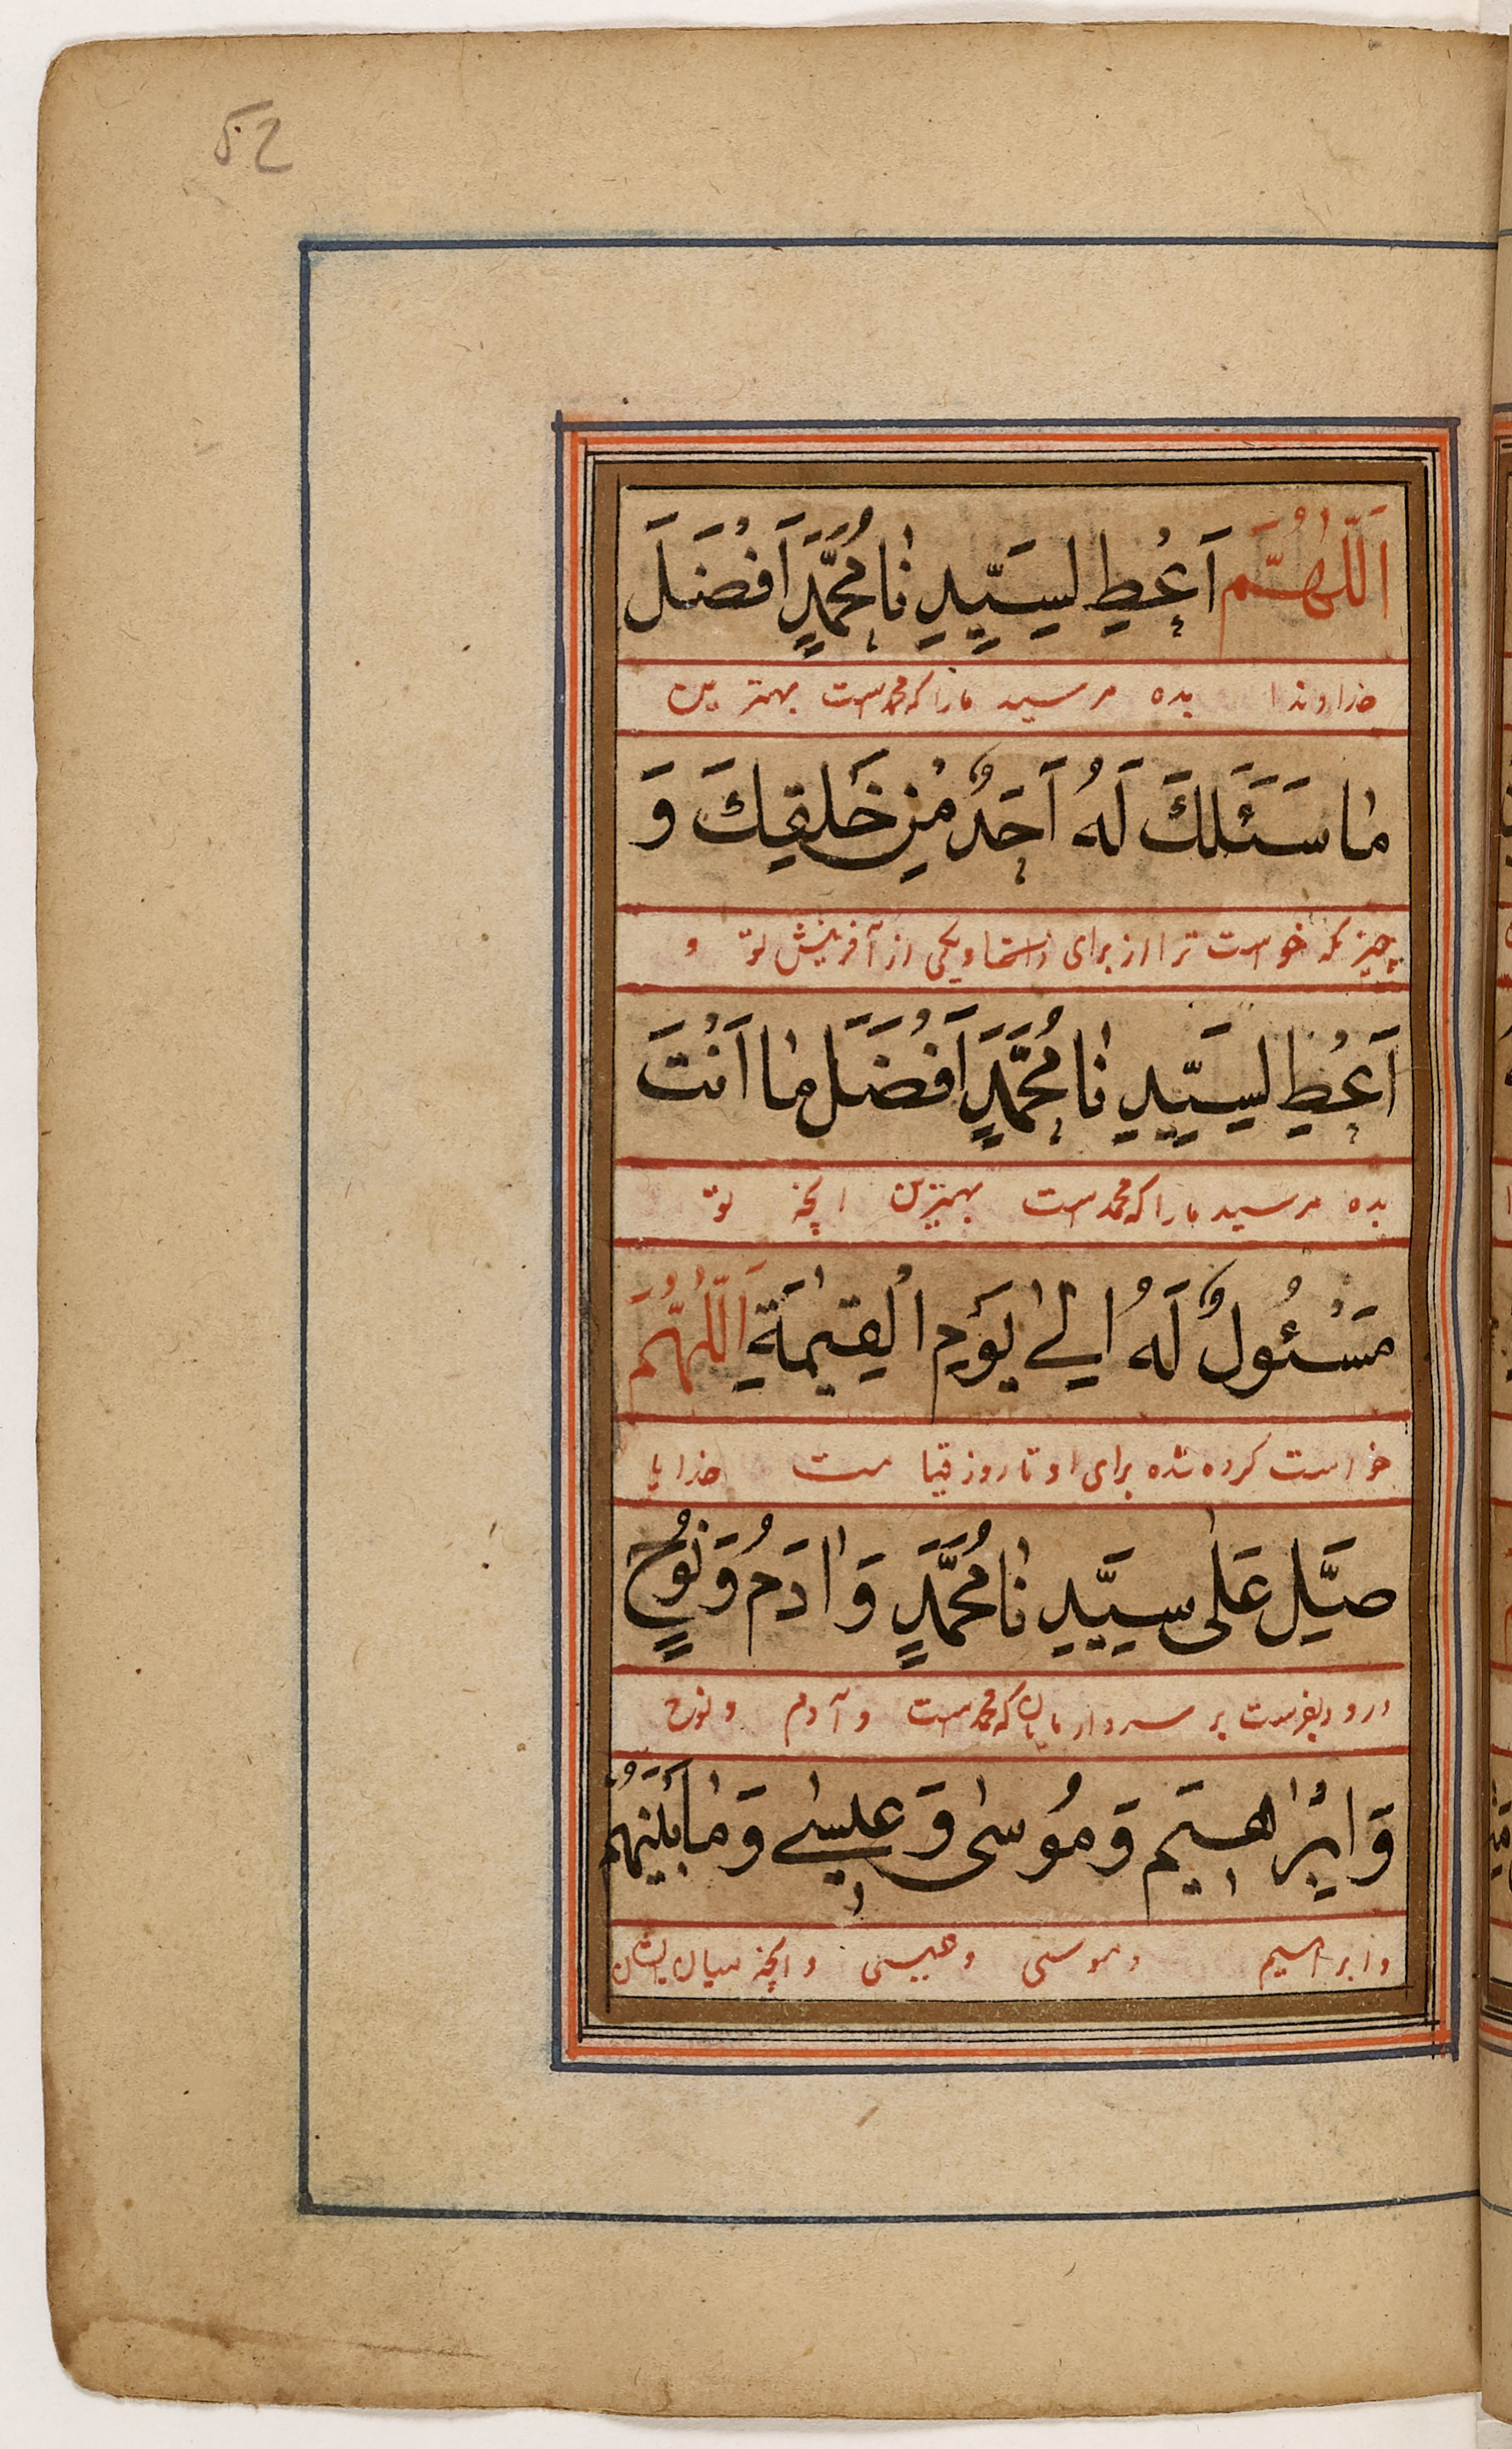 52
اَللّٰهُمَّ اَعْطِ لِسَيِّدِنَا مُحَمَّدٍ اَفْضَلَ
خداوندا بده مر سید مارا که محمدست بهترین
مٰا سَئَلَكَ لَهُ اَحَدٌ مِنْ خَلْقِكَ وَ
چیزیکه خواست ترا از برای یکی از آفرینش تو و
اَعْطِ لِسَيِّدِنٰا مُحَمَّدٍ اَفْضَلَ مٰا اَنْتَ
بده مر سید مارا که محمدست بهترین انچه تو
مَسْئُولٌ لَهُ اِلٰى يَوْمِ الْقِيٰمَةِ اَللّٰهُمَّ
خواست کرده شده برای او تا روز قیامت خدایا
صَلِّ عَلٰى سَيِّدِنٰا مُحَمَّدٍ وَاٰدَمَ وَنُوحٍ
درود بفرست بر سردار مایان که محمدست و آدم و نوح
وَاِبْرٰاهِيمَ وَمُوسٰى وَعِيسٰى وَمٰا بَيْنَهُمْ
و ابراهیم و موسی و عیسی و انچه میان ایشان